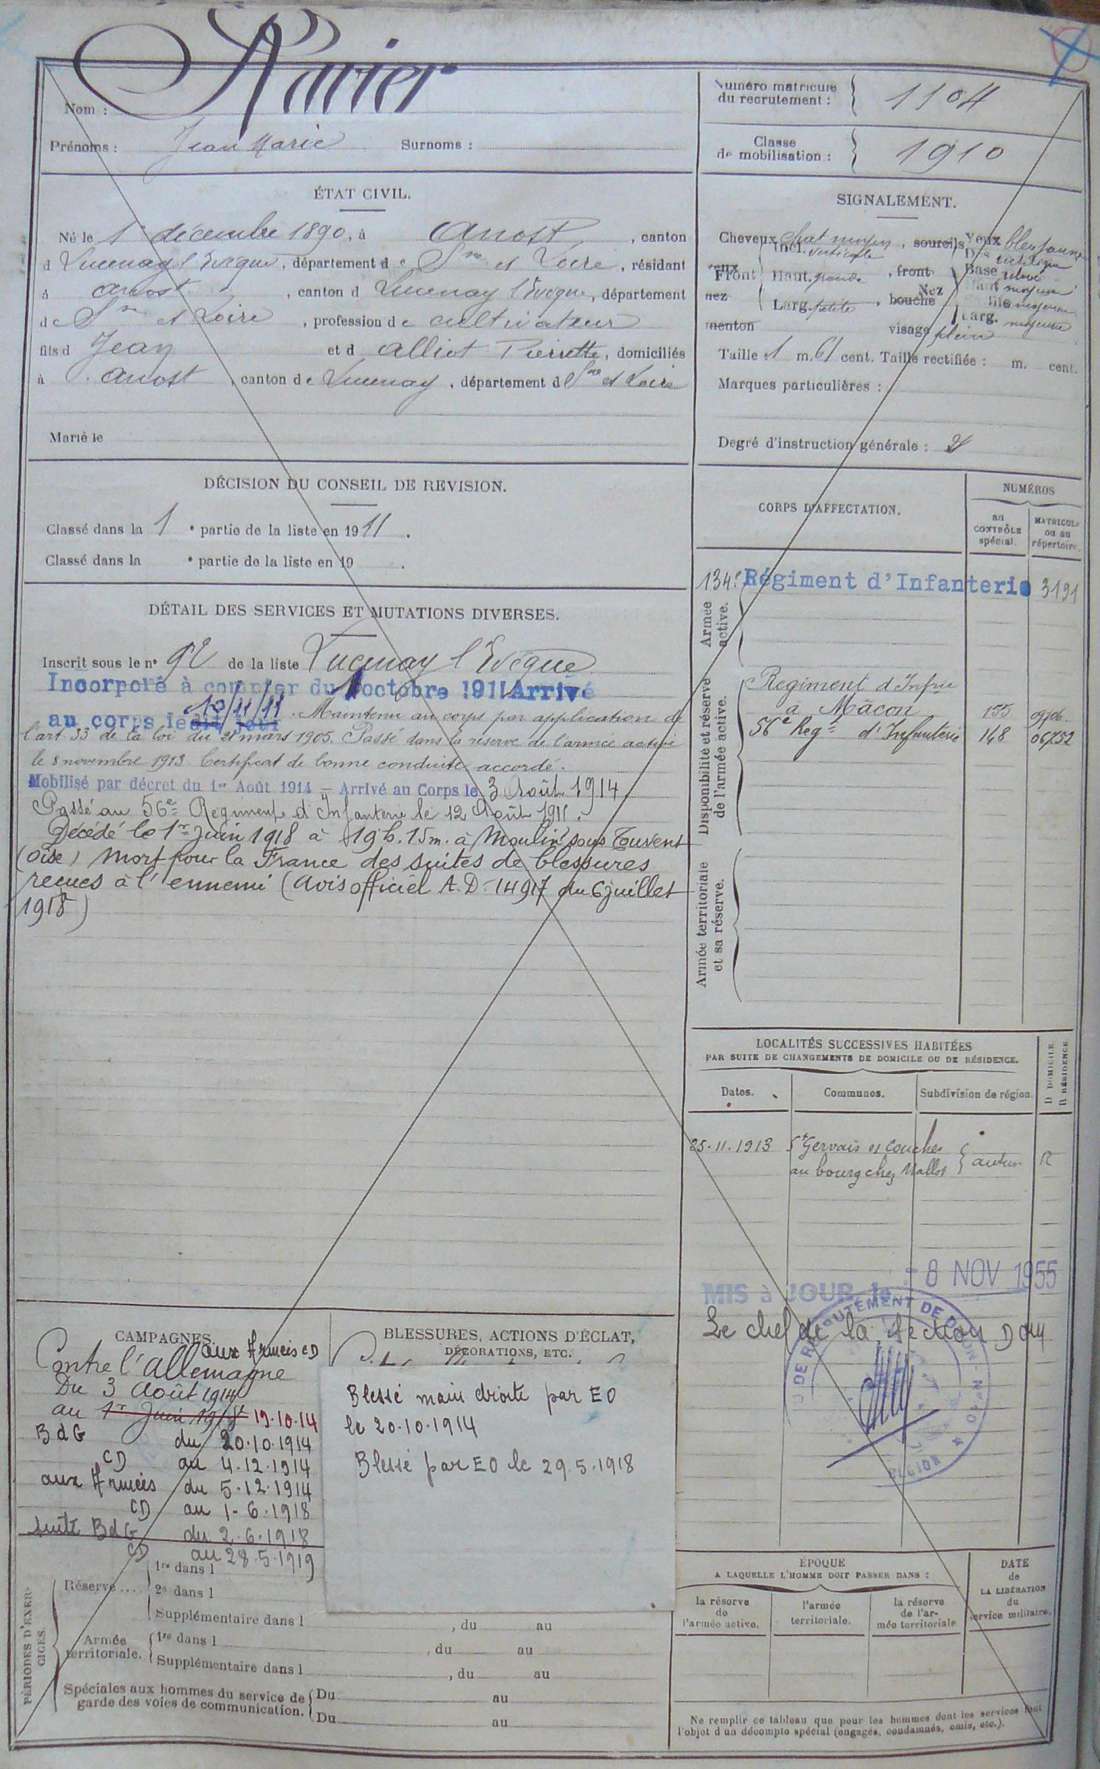 Ravier
Nom :
Prénoms : Jean Marie Surnoms :
Numéro matricule du recrutement : 1104
Classe de mobilisation : 1910
ÉTAT CIVIL.
Né le 1er décembre 1890, à Anost, canton
d Lucenay l'Evêque, département de Sne et Loire, résidant
à Anost, canton d Lucenay l'Evêque, département
de Sne et Loire, profession de cultivateur
fils d Jean et d Alliot Pierrette, domiciliés
à Anost, canton de Lucenay, département d Sne et Loire
Marié le
SIGNALEMENT.
Cheveux chat moyen, sourcils Yeux
Incl. verticale
yeux Front Haut. grande, front Nez Base
nez Larg. petite, bouche
Haut moyen
menton visage plein Larg. moyenne
Taille 1 m. 61 cent. Taille rectifiée : m. cent.
Marques particulières :
Degré d'instruction générale : 2
DÉCISION DU CONSEIL DE REVISION.
Classé dans la 1 e partie de la liste en 1911.
Classé dans la e partie de la liste en 19 .
DÉTAIL DES SERVICES ET MUTATIONS DIVERSES.
Inscrit sous le n° 92 de la liste Lucenay l'Evêque
Incorporé à compter du 1 octobre 1911 Arrivé
au corps le dit jour 10/11/11. Maintenu au corps par application de
l'art 33 de la loi du 21 mars 1905. Passé dans la réserve de l'armée active
le 8 novembre 1913 Certificat de bonne conduite accordé.
Mobilisé par décret du 1er Août 1914 – Arrivé au Corps le 3 Août 1914
Passé au 56e Régiment d'Infanterie le 12 Août 1911.
Décédé le 1er juin 1918 à 19 h. 15 m. à Moulin sous Touvent
(Oise) Mort pour la France des suites de blessures
reçues à l'ennemi (Avis officiel A.D. 14917 du 6 juillet
1918)
CORPS D'AFFECTATION.
NUMÉROS
au CONTRÔLE spécial.
MATRICULE ou au répertoire.
Armée active.
134e Régiment d'Infanterie 3191
Disponibilité et réserve de l'armée active.
Régiment d'Infrie
à Mâcon 155
56e Regt d'Infanterie 148
Armée territoriale et sa réserve.
LOCALITÉS SUCCESSIVES HABITÉES
PAR SUITE DE CHANGEMENTS DE DOMICILE OU DE RÉSIDENCE.
Dates. Communes. Subdivision de région. D DOMICILE R RÉSIDENCE
25.11.1913 St Gervais s/ Couches
au bourg chez Nallot Autun R
MIS à JOUR le - 8 NOV 1955
Le chef de la section Dom
DE RECRUTEMENT DE DIJON
CAMPAGNES.
Contre l'Allemagne aux Armées CD
Du 3 Août 1914
au 1er Juin 1918 19.10.14
BdG du 20.10.1914
CD au 4.12.1914
aux Armées du 5.12.1914
CD au 1-6.1918
suite BdG du 2.6.1918
CD au 28.5.1919
BLESSURES, ACTIONS D'ÉCLAT,
DÉCORATIONS, ETC.
Blessé main droite par EO
le 20.10.1914
Blessé par EO le 29.5.1918
PÉRIODES D'EXERCICES.
Réserve .... 1re dans l
2e dans l
Supplémentaire dans l , du au
Armée territoriale. 1re dans l , du au
Supplémentaire dans l , du au
Spéciales aux hommes du service de garde des voies de communication. Du au
Du au
ÉPOQUE
A LAQUELLE L'HOMME DOIT PASSER DANS :
la réserve de l'armée active.
l'armée territoriale.
la réserve de l'armée territoriale
DATE de LA LIBÉRATION du service militaire.
Ne remplir ce tableau que pour les hommes dont les services font
l'objet d'un décompte spécial (engagés, condamnés, omis, etc.).